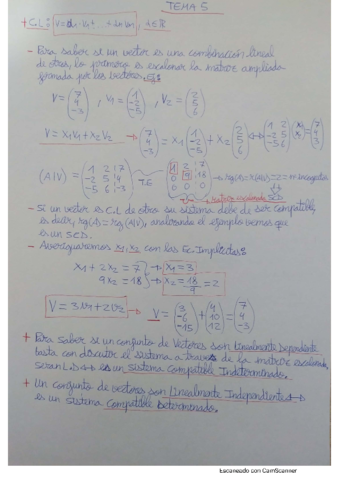 TEMA 5
+ C.L: V = α₁·V₁ + ... + αₙVₙ, α ∈ ℝ
- Para saber si un vector es una combinación lineal
de otros, lo primero es escalonar la matriz ampliada
formada por los vectores. Ej:
V = (7 4 -3), V₁ = (1 -2 -5), V₂ = (2 5 6)
V = X₁V₁ + X₂V₂ → (7 4 -3) = X₁ (1 -2 -5) + X₂ (2 5 6) ↔ (1 2 -2 5 -5 6) (X₁ X₂) = (7 4 -3)
(A|V) = (1 2 | 7 -2 5 | 4 -5 6 | -3) T.E (1 2 | 7 0 9 | 18 0 0 | 0) → rg(A) = rg(A|V) = 2 = n incógnitas
matriz escalonada SCD
- Si un vector es C.L de otro su sistema debe de ser compatible,
es decir, rg(A) = rg(A|V), analizando el ejemplo vemos que
es un SCD.
- Averiguaremos X₁, X₂ con las Ec. Implícitas:
X₁ + 2X₂ = 7 → X₁ = 3
9X₂ = 18 → X₂ = 18/9 = 2
V = 3V₁ + 2V₂ → V = (3 -6 -15) + (4 10 12) = (7 4 -3)
+ Para saber si un conjunto de vectores son Linealmente Dependiente
basta con discutir el sistema a través de la matriz escalonada,
serán L.D ↔ es un Sistema Compatible Indeterminado.
+ Un conjunto de vectores son Linealmente Independientes ↔
es un Sistema Compatible Determinado.
Escaneado con CamScanner